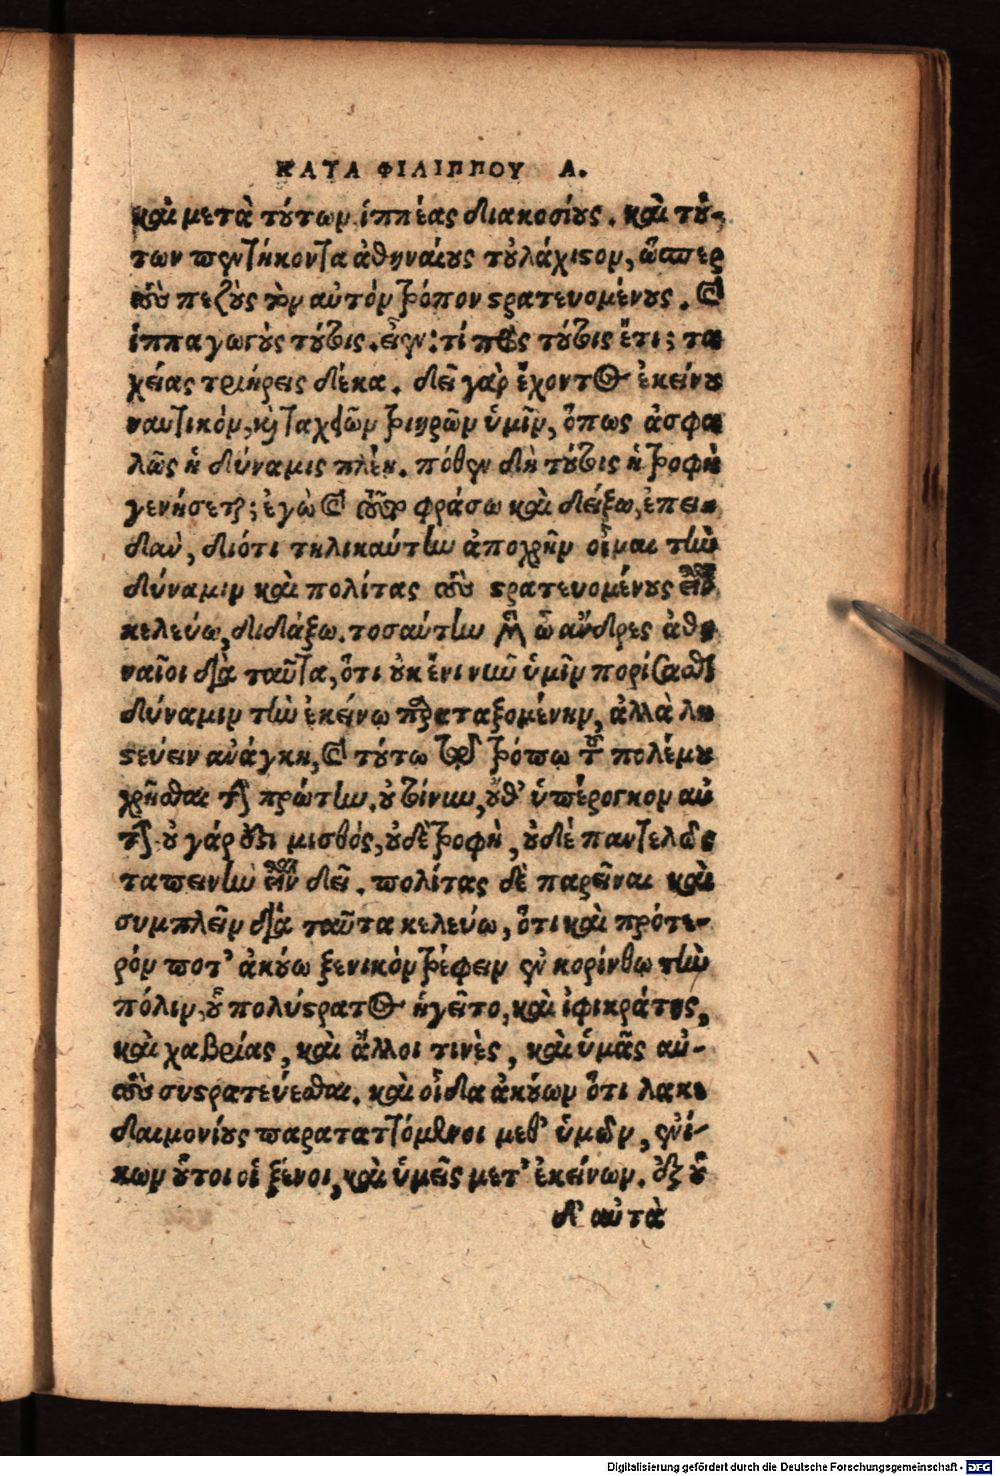 ΚΑΤΑ ΦΙΛΙΠΠΟΥ Α.
καὶ μετὰ τούτων ἱππέας διακοσίους. καὶ τού-
των πεντήκοντα ἀθηναίους τοὐλάχιστον, ὥσπερ
τοὺς πεζοὺς τὸν αὐτὸν τρόπον στρατευομένους. καὶ
ἱππαγωγοὺς τούτοις. εἶεν: τί πρὸς τούτοις ἔτι; τα
χείας τριήρεις δέκα. δεῖ γὰρ ἔχοντος ἐκείνου
ναυτικόν, καὶ ταχειῶν τριηρῶν ὑμῖν, ὅπως ἀσφα
λῶς ἡ δύναμις πλέῃ. πόθεν δὴ τούτοις ἡ τροφὴ
γενήσεται; ἐγὼ καὶ τοῦτο φράσω καὶ δείξω, ἐπει-
δὰν, διότι τηλικαύτην ἀποχρῆν οἶμαι τὴν
δύναμιν καὶ πολίτας τοὺς στρατευομένους εἶναι
κελεύω, διδάξω. τοσαύτην μὲν ὦ ἄνδρες ἀθη
ναῖοι διὰ ταῦτα, ὅτι οὐκ ἔνι νῦν ὑμῖν πορίσασθαι
δύναμιν τὴν ἐκείνῳ παραταξομένην, ἀλλὰ λῃ
στεύειν ἀνάγκη, καὶ τούτῳ τῷ τρόπῳ τοῦ πολέμου
χρῆσθαι τὴν πρώτην. οὐ τοίνυν, οὔθ' ὑπέρογκον αὐ
τὴν. οὐ γάρ ἔστι μισθός, οὐδὲ τροφὴ, οὐδὲ παντελῶς
ταπεινὴν εἶναι δεῖ. πολίτας δὲ παρεῖναι καὶ
συμπλεῖν διὰ ταῦτα κελεύω, ὅτι καὶ πρότε-
ρόν ποτ' ἀκούω ξενικὸν τρέφειν ἐν κορίνθῳ τὴν
πόλιν, οὗ πολύστρατος ἡγεῖτο, καὶ ἰφικράτης,
καὶ χαβρίας, καὶ ἄλλοι τινὲς, καὶ ὑμᾶς αὐ-
τοὺς συστρατεύεσθαι. καὶ οἶδα ἀκούων ὅτι λακε
δαιμονίους παραταττόμενοι μεθ' ὑμῶν, ἐνί-
κων οὗτοι οἱ ξένοι, καὶ ὑμεῖς μετ' ἐκείνων. ἐξ οὗ
δ' αὐτὰ
Digitalisierung gefördert durch die Deutsche Forschungsgemeinschaft - DFG